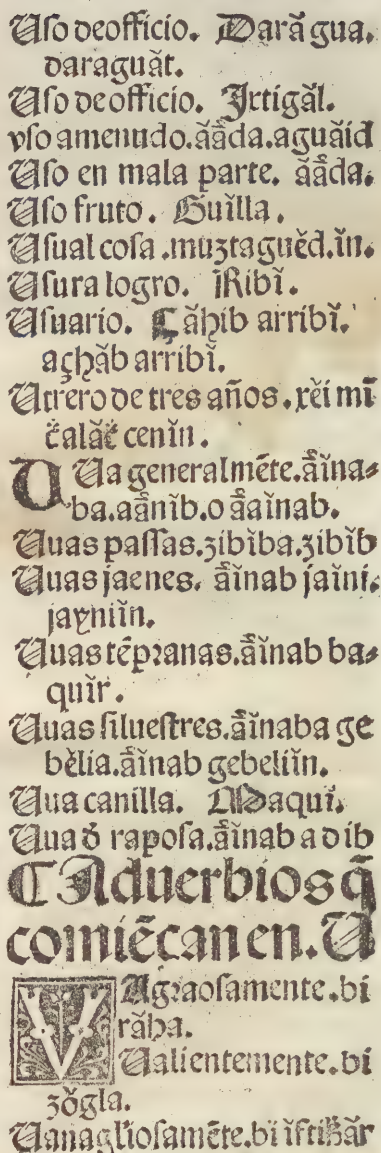 Uſo deofficio. Darã gua.
daraguãt.
Uſo de officio. Jrtigãl.
vſo amenudo.ããda.aguãid
Uſo en mala parte. ããda.
Uſo fruto. Guĩlla.
Uſual coſa.muʒtaguẽd.ĩn.
Uſura logro. Ribĩ.
Uſuario. Çãhib arribĩ.
açhãb arribĩ.
Utrero de tres años.xẽi mĩ
čalãč cenĩn.
Ua generalmẽte.ãĩna⸗
ba.aãnĩb.o ãaĩnab.
Uuas paſſas.ʒibĩba.ʒibĩb
Uuas jaenes. ãĩnab jaĩni.
jayniĩn.
Uuas tẽpꝛanas.ãĩnab ba⸗
quĩr.
Uuas ſilueſtres.ãĩnaba ge
bẽlia.ãĩnab gebeliĩn.
Uua canilla. Maquĩ.
Uua đ rapoſa.ãĩnab adĩb
¶Aduerbios q̃
comiẽcan en.U
VAgꝛaoſamente.bi
rãha.
Ualientemente.bi
ʒõgla.
Uanaglioſamẽte.bi ĩftihãr